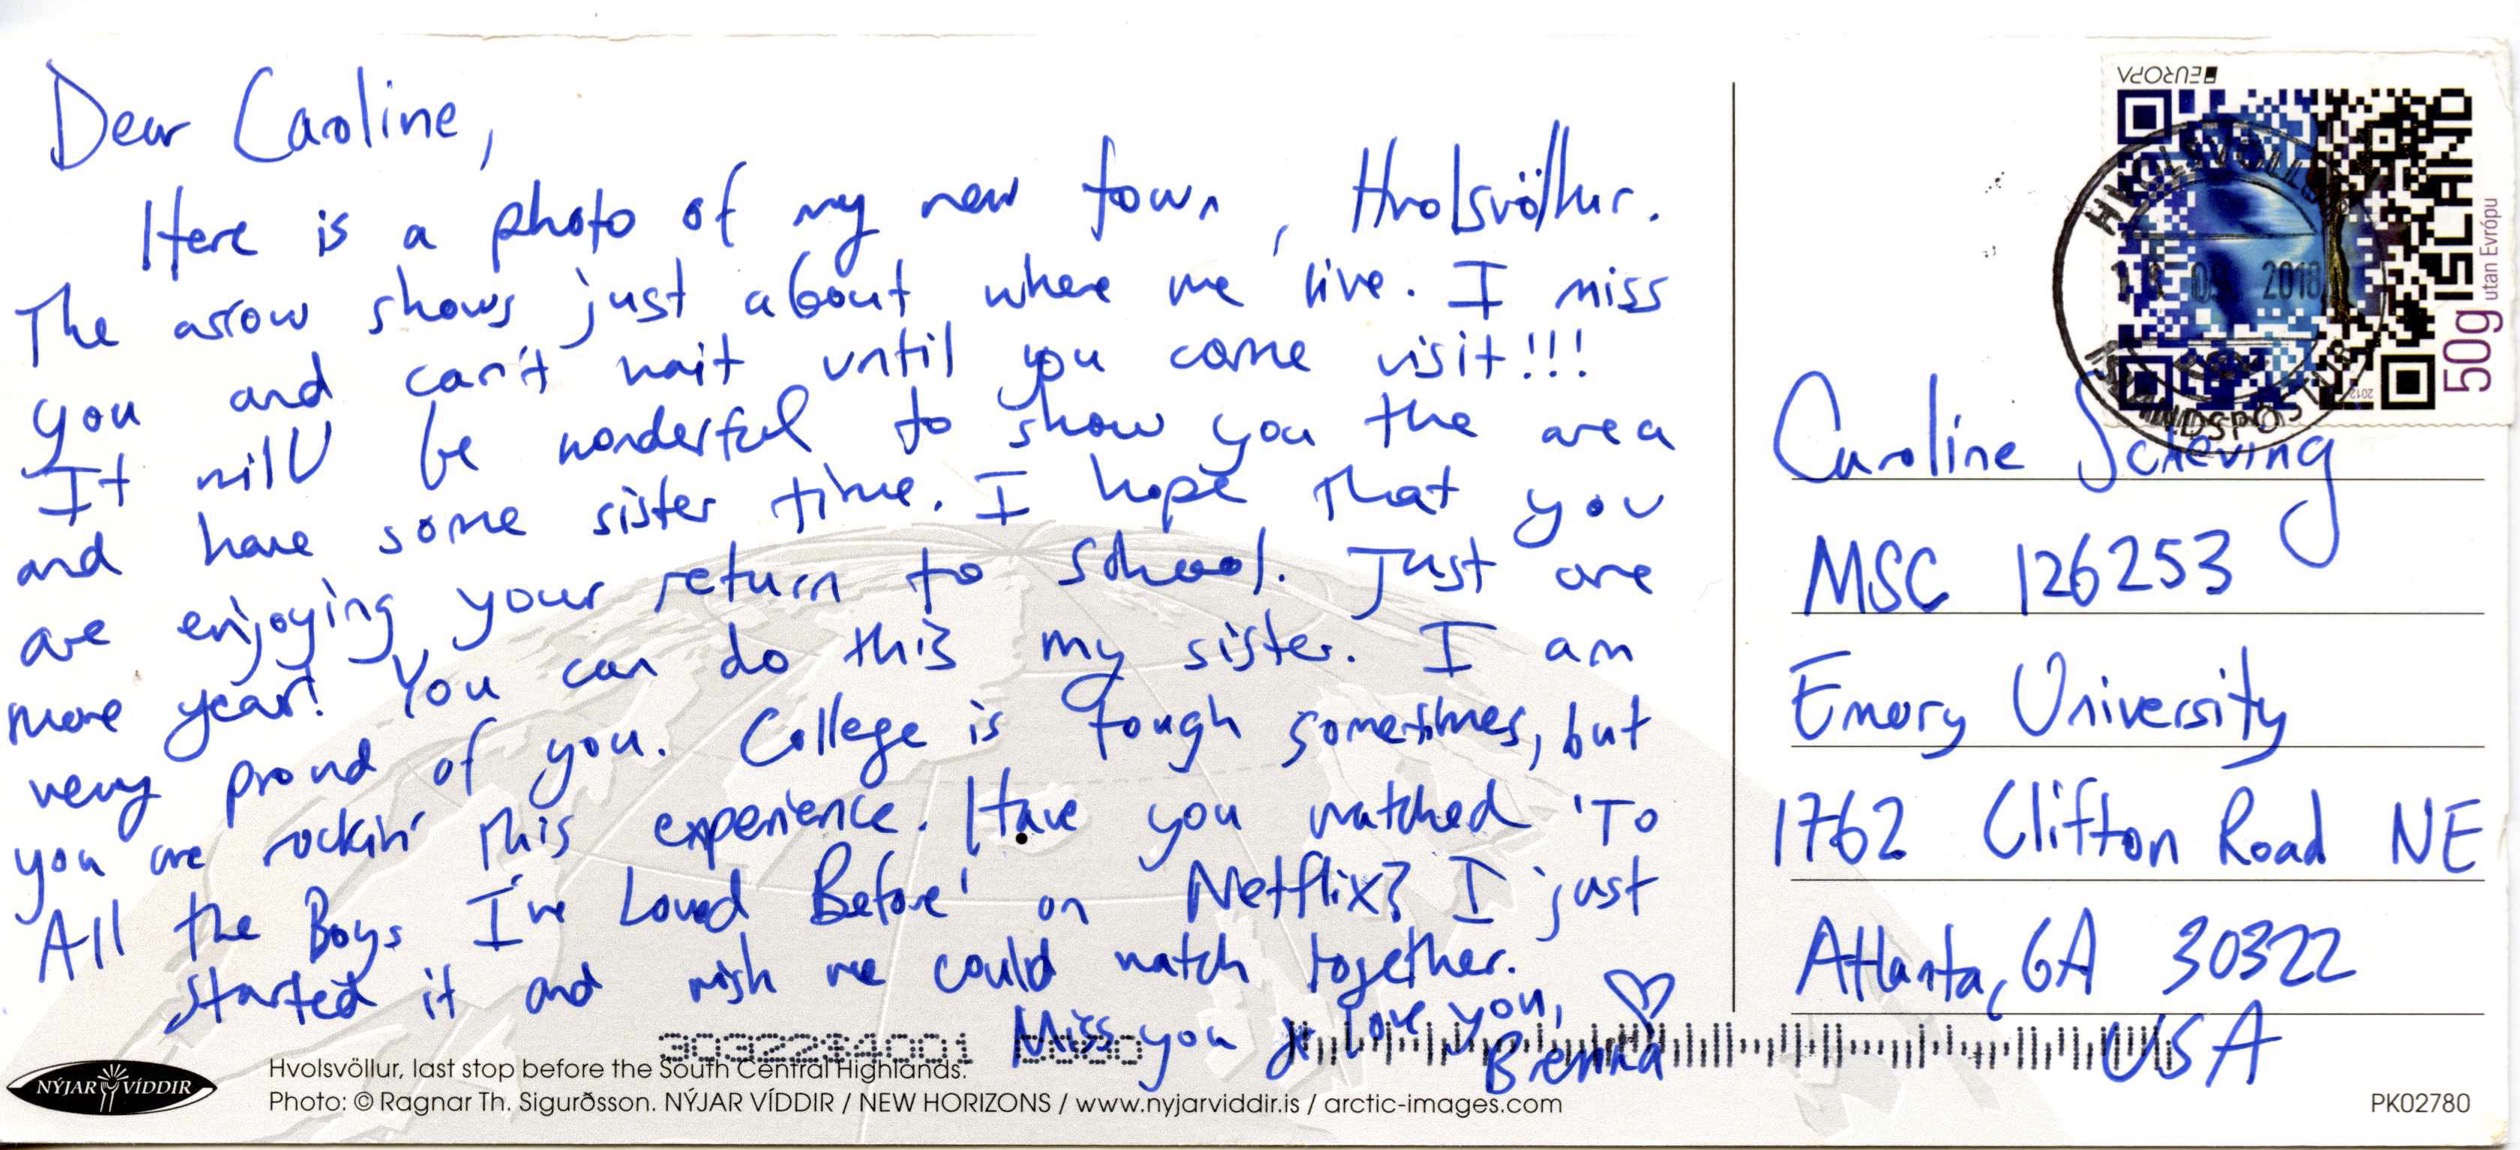 Dear Caroline,
Here is a photo of my new town, Hvolsvöllur.
The arrow shows just about where we live. I miss
you and can't wait until you come visit!!!
It will be wonderful to show you the area
and have some sister time. I hope that you
are enjoying your return to school. Just one
more year! You can do this my sister. I am
very proud of you. College is tough sometimes, but
you are rockin' this experience. Have you watched 'To
All the Boys I've Loved Before' on Netflix? I just
started it and wish we could watch together.
Miss you & love you,
Brenna
NÝJAR VÍDDIR
Hvolsvöllur, last stop before the South Central Highlands.
Photo: © Ragnar Th. Sigurðsson. NÝJAR VÍDDIR / NEW HORIZONS / www.nyjarviddir.is / arctic-images.com
EUROPA
ISLAND
50g utan Evrópu
2012
2018
Caroline Scheving
MSC 126253
Emory University
1762 Clifton Road NE
Atlanta, GA 30322
USA
PK02780